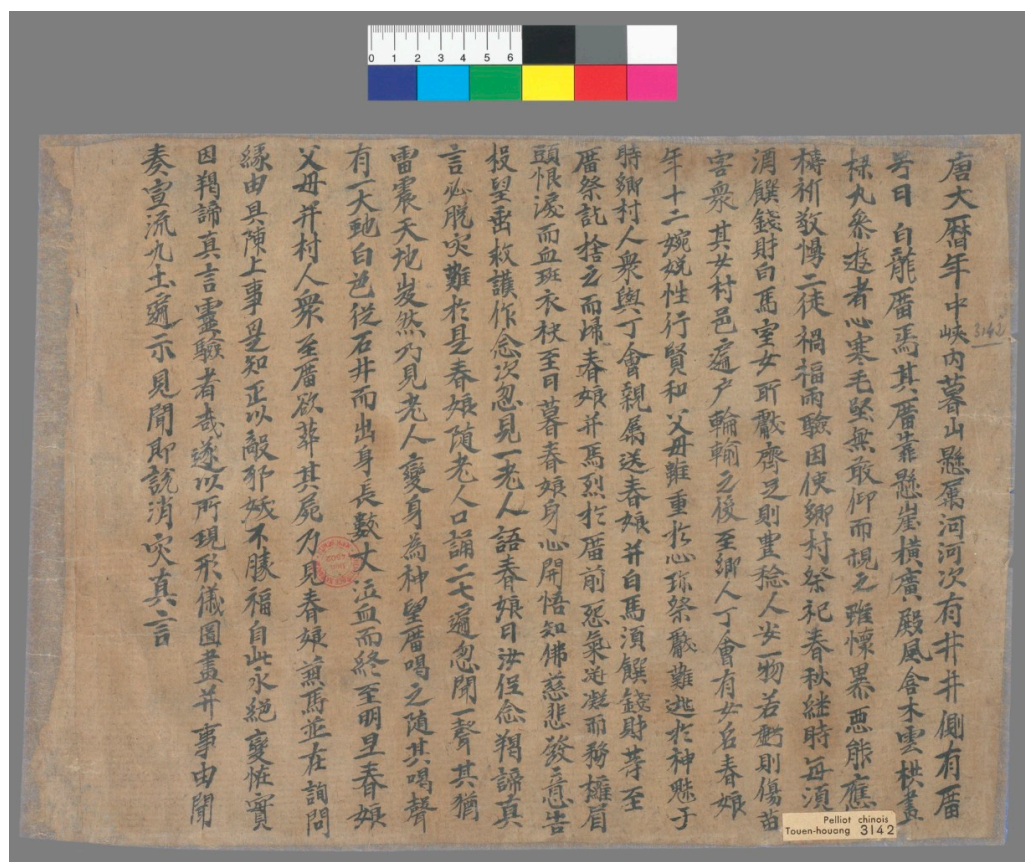 唐大曆年中峽内暮山懸属河河次有井井側有庿
号曰白龍庿焉其庿靠懸崖横廣殿風舍木雲栱畫
樑凡叅遊者心寒毛竪無敢仰而視之雖懷異惡能應
禱祈敬慢二徒禍福兩驗因使鄉村祭祀春秋継時每湏
酒饌錢財白馬室女所獻齊足則豊稔人安一物若虧則傷苗
害衆其女村邑遍户輪輸之後至鄉人丁會有女名春娘
年十二婉娩性行賢和父母雖重於心珎祭獻難逃於神魅于
時鄉村人衆與丁會親属送春娘并白馬湏饌錢財等至
庿祭訖捨之而歸春娘并馬烈於庿前怨氣凝而務攤眉
頭恨淚而血班衣袂至日暮春娘身心開悟知佛慈悲發意告
投望垂救護作念次忽見一老人語春娘曰汝但念羯諦真
言必脱灾難於是春娘随老人口誦二七遍忽聞一聲其猶
雷震天地岌然乃見老人變身為神望庿喝之随其喝聲
有一大虵白色從石井而出身長數丈泣血而終至明旦春娘
父母并村人衆至庿欲葬其屍乃見春娘並馬並在詢問
緣由具陳上事是知正以敵邪妖不勝福自此永絶變恠實
因羯諦真言靈驗者哉遂以所現形儀圖畫并事由聞
奏宣流九土遍示見聞即說消灾真言
3142
Pelliot chinois
Touen-houang 3142
0 1 2 3 4 5 6